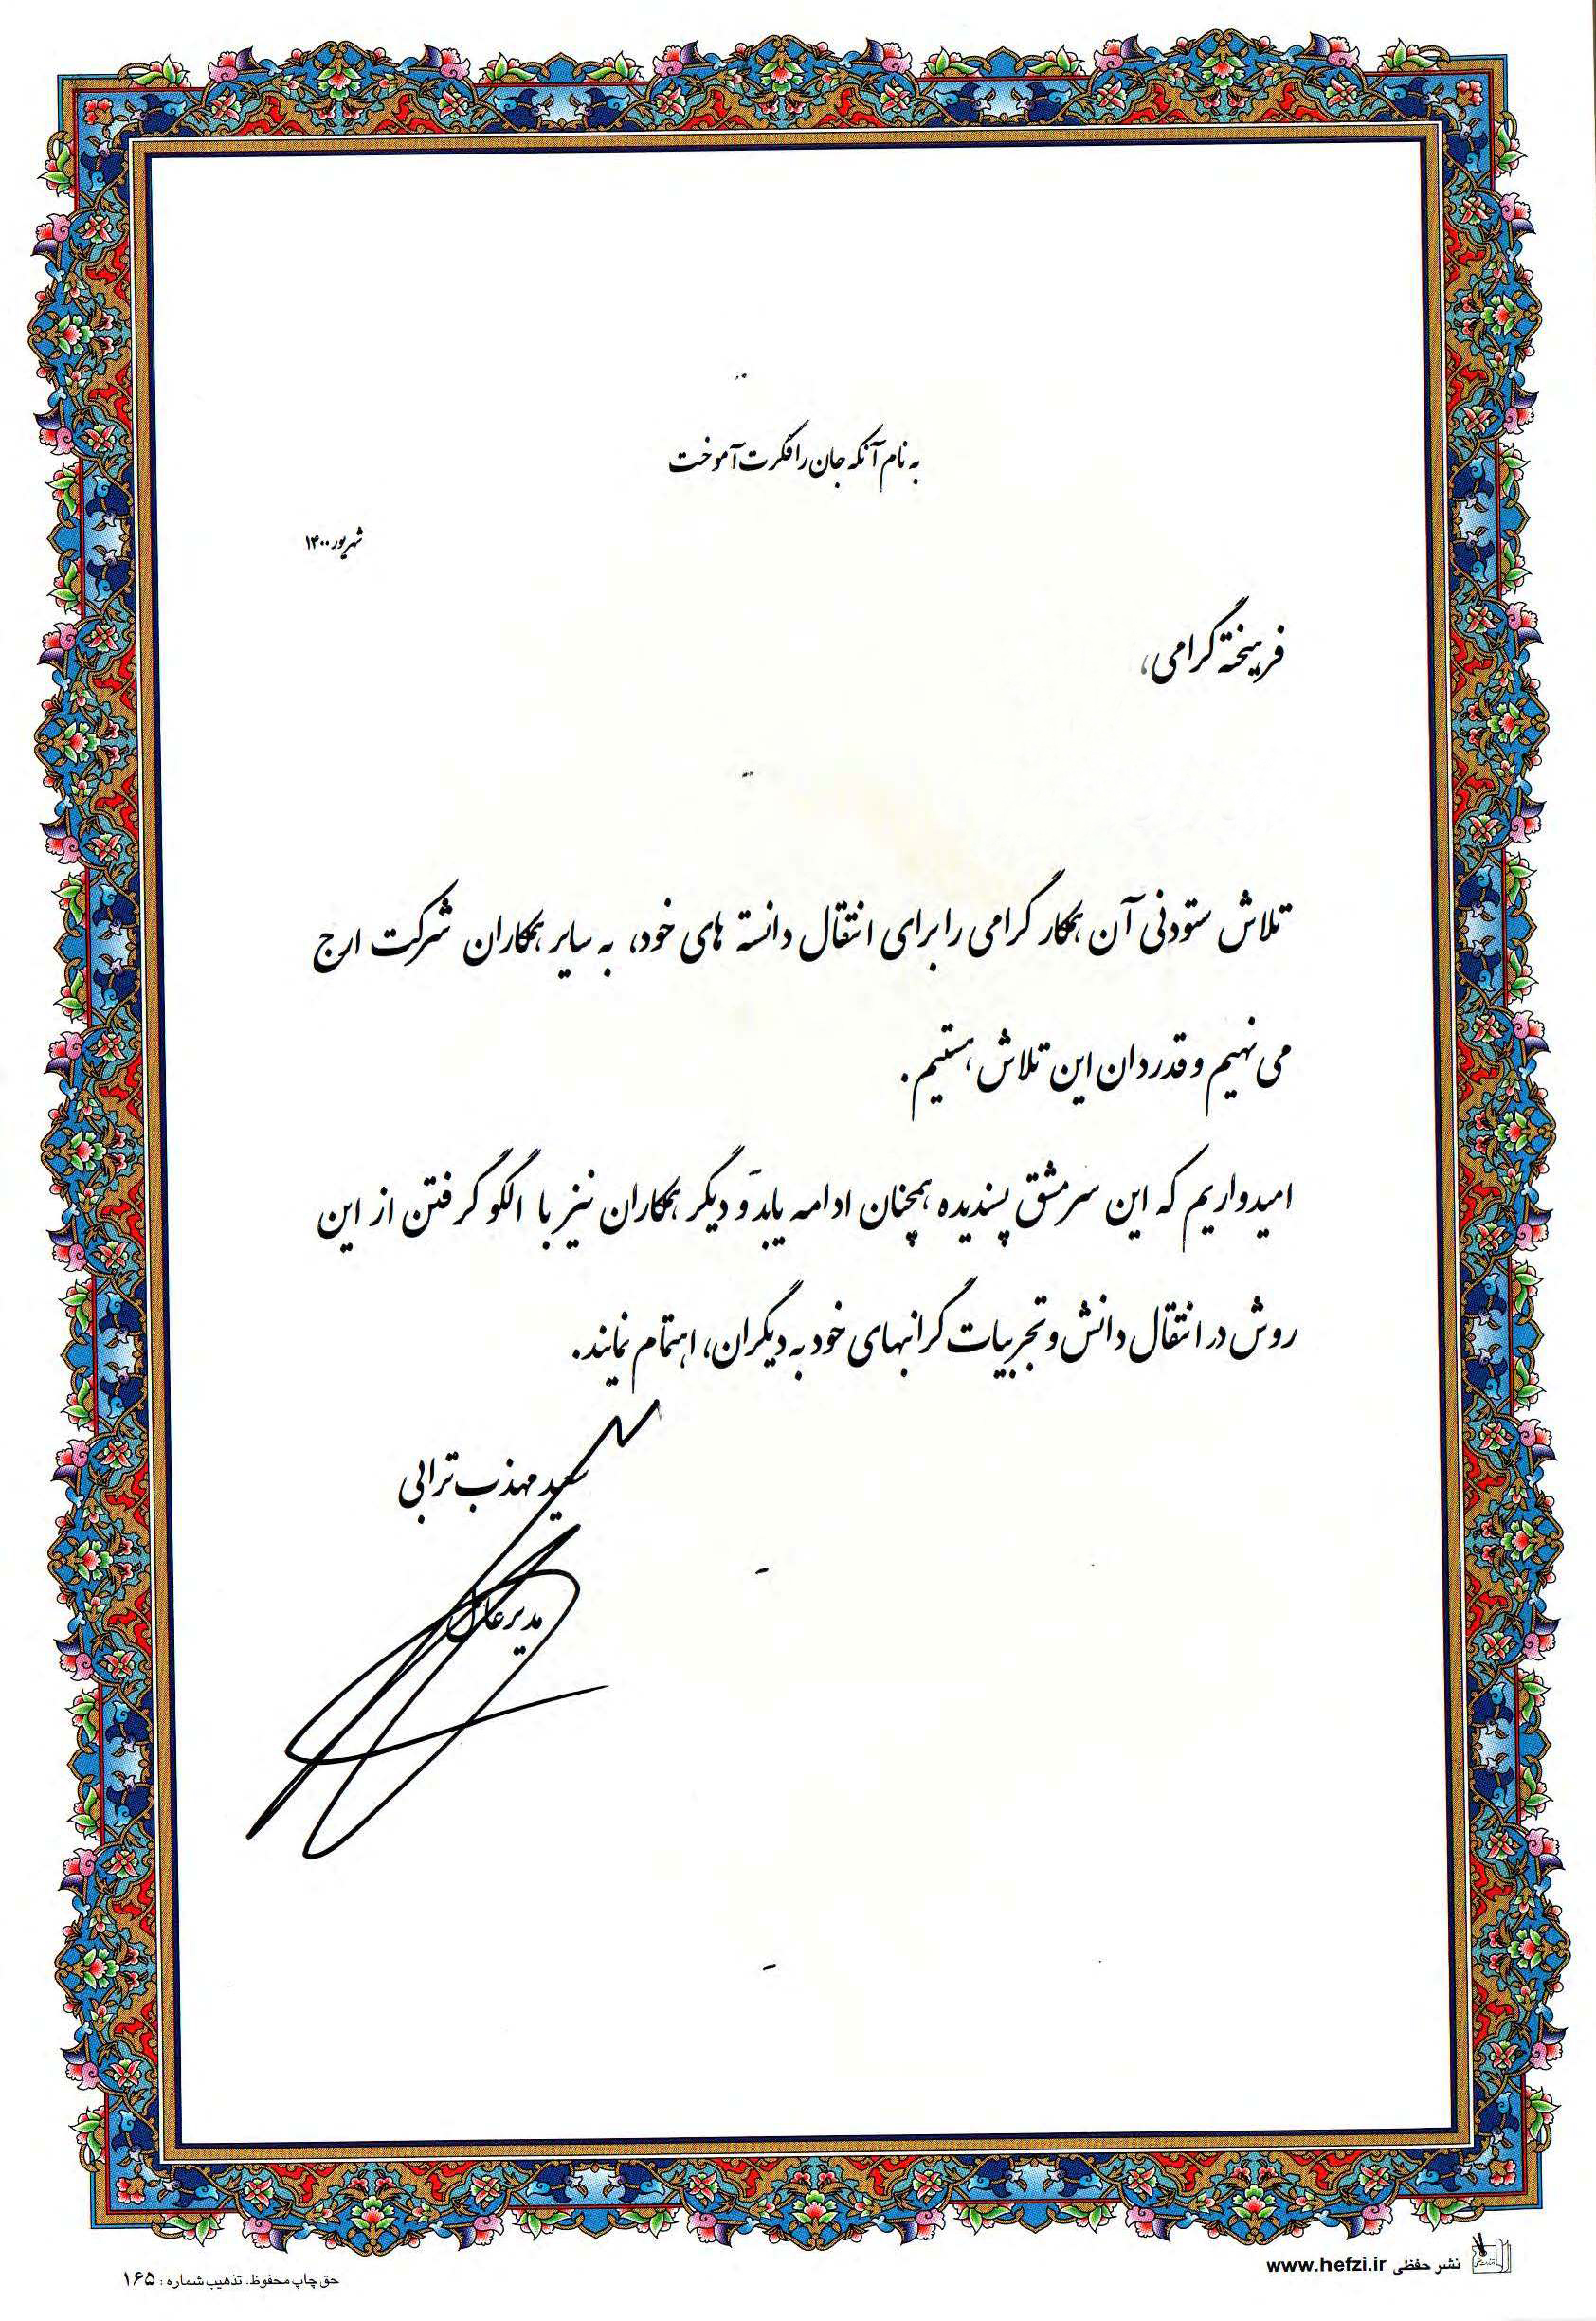 به نام آنکه جان را فکرت آموخت
شهریور ۱۴۰۰
فرهیخته گرامی،
تلاش ستودنی آن همکار گرامی را برای انتقال دانسته های خود، به سایر همکاران شرکت ارج
می نهیم و قدردان این تلاش هستیم.
امیدواریم که این سرمشق پسندیده همچنان ادامه یابد و دیگر همکاران نیز با الگو گرفتن از این
روش در انتقال دانش و تجربیات گرانبهای خود به دیگران، اهتمام نمایند.
سعید مهذب ترابی
مدیرعامل
نشر حفظی www.hefzi.ir
حق چاپ محفوظ. تذهیب شماره : ۱۶۵